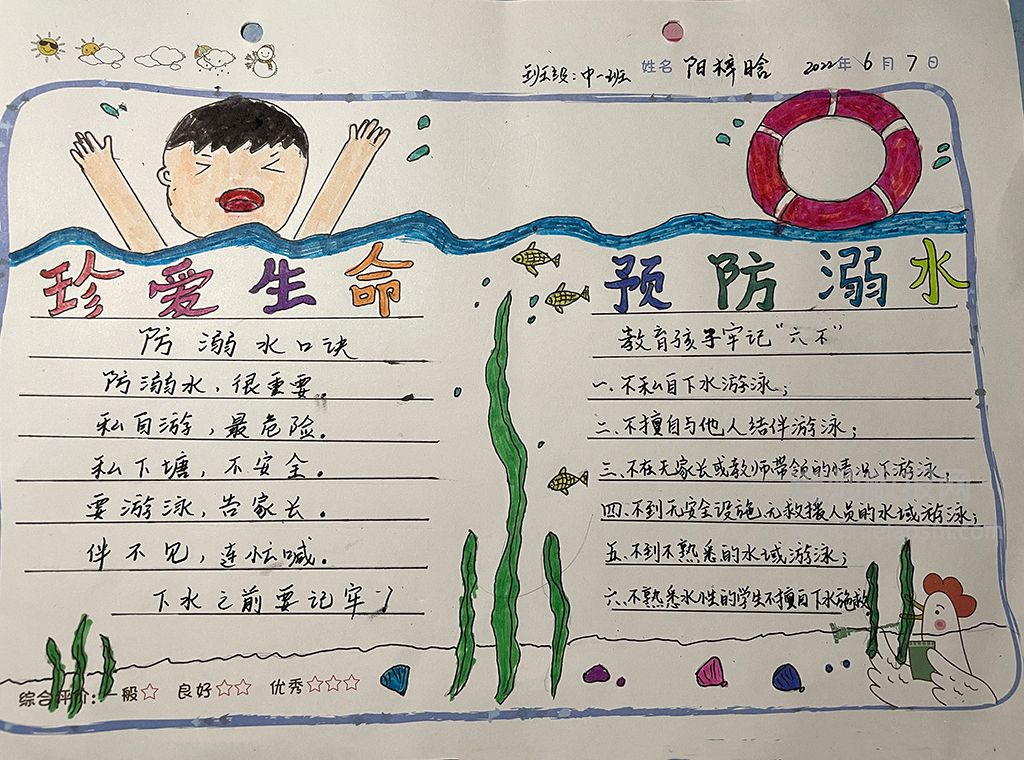 班级:中一班 姓名 阳梓晗 2022年 6月 7日
珍爱生命
预防溺水
防溺水口诀
防溺水,很重要。
私自游,最危险。
私下塘,不安全。
要游泳,告家长。
伴不见,连忙喊。
下水之前要记牢!
教育孩子牢记"六不"
一、不私自下水游泳;
二、不擅自与他人结伴游泳;
三、不在无家长或教师带领的情况下游泳;
四、不到无安全设施、无救援人员的水域游泳;
五、不到不熟悉的水域游泳;
六、不熟悉水性的学生不擅自下水施救
综合评价:一般☆ 良好☆☆ 优秀☆☆☆